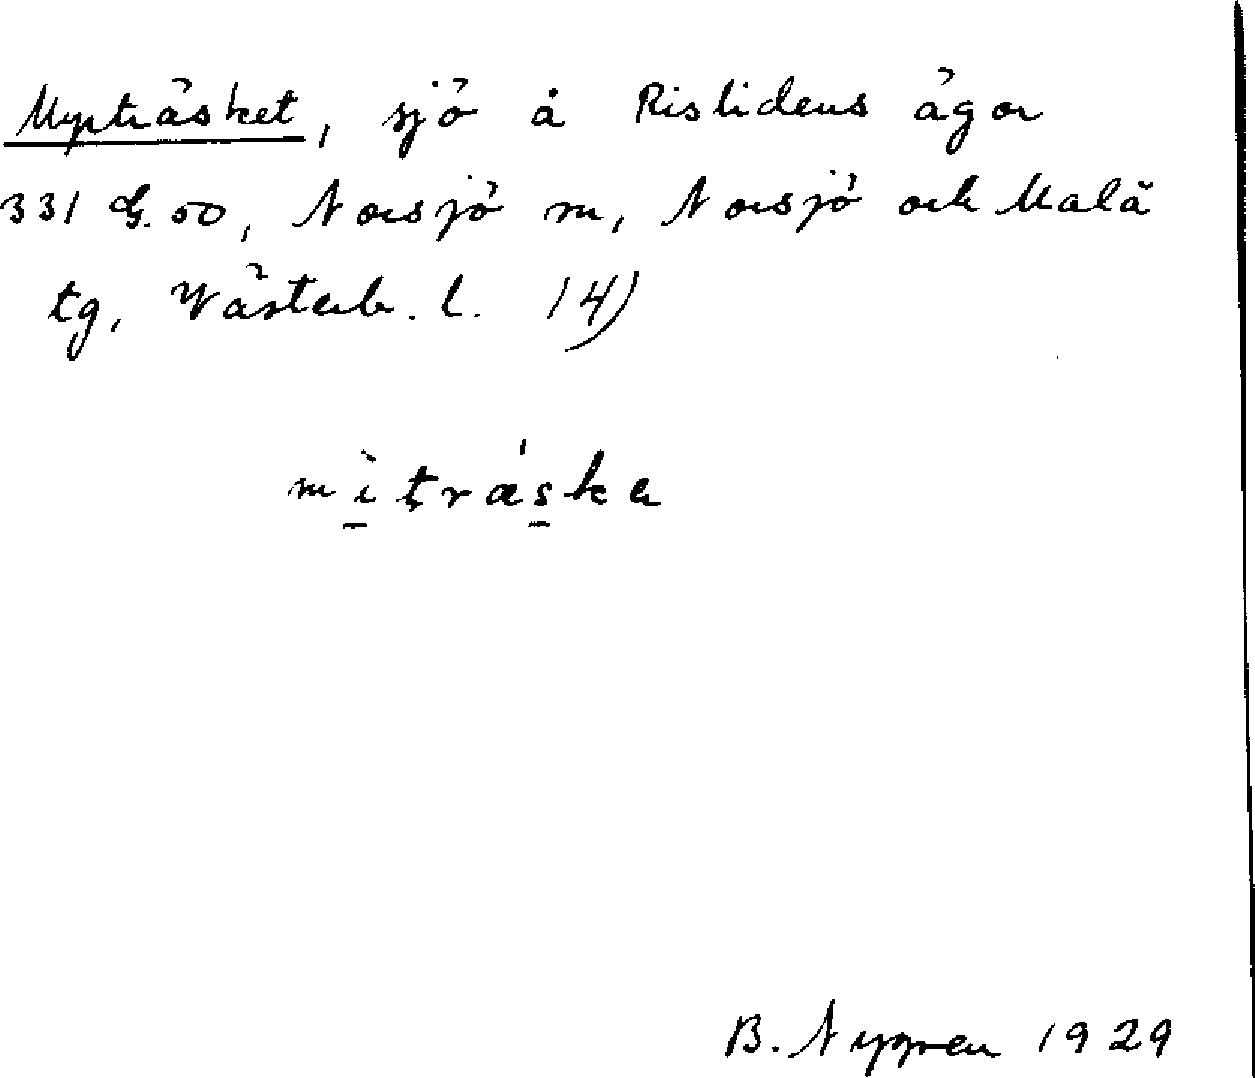 Myrträsket, sjö å Rislidens ägor
331 G. 50, Norsjö sn, Norsjö och Malå
tg, Västerb. l. 14)
mìtrǽska
B. Nygren 1929